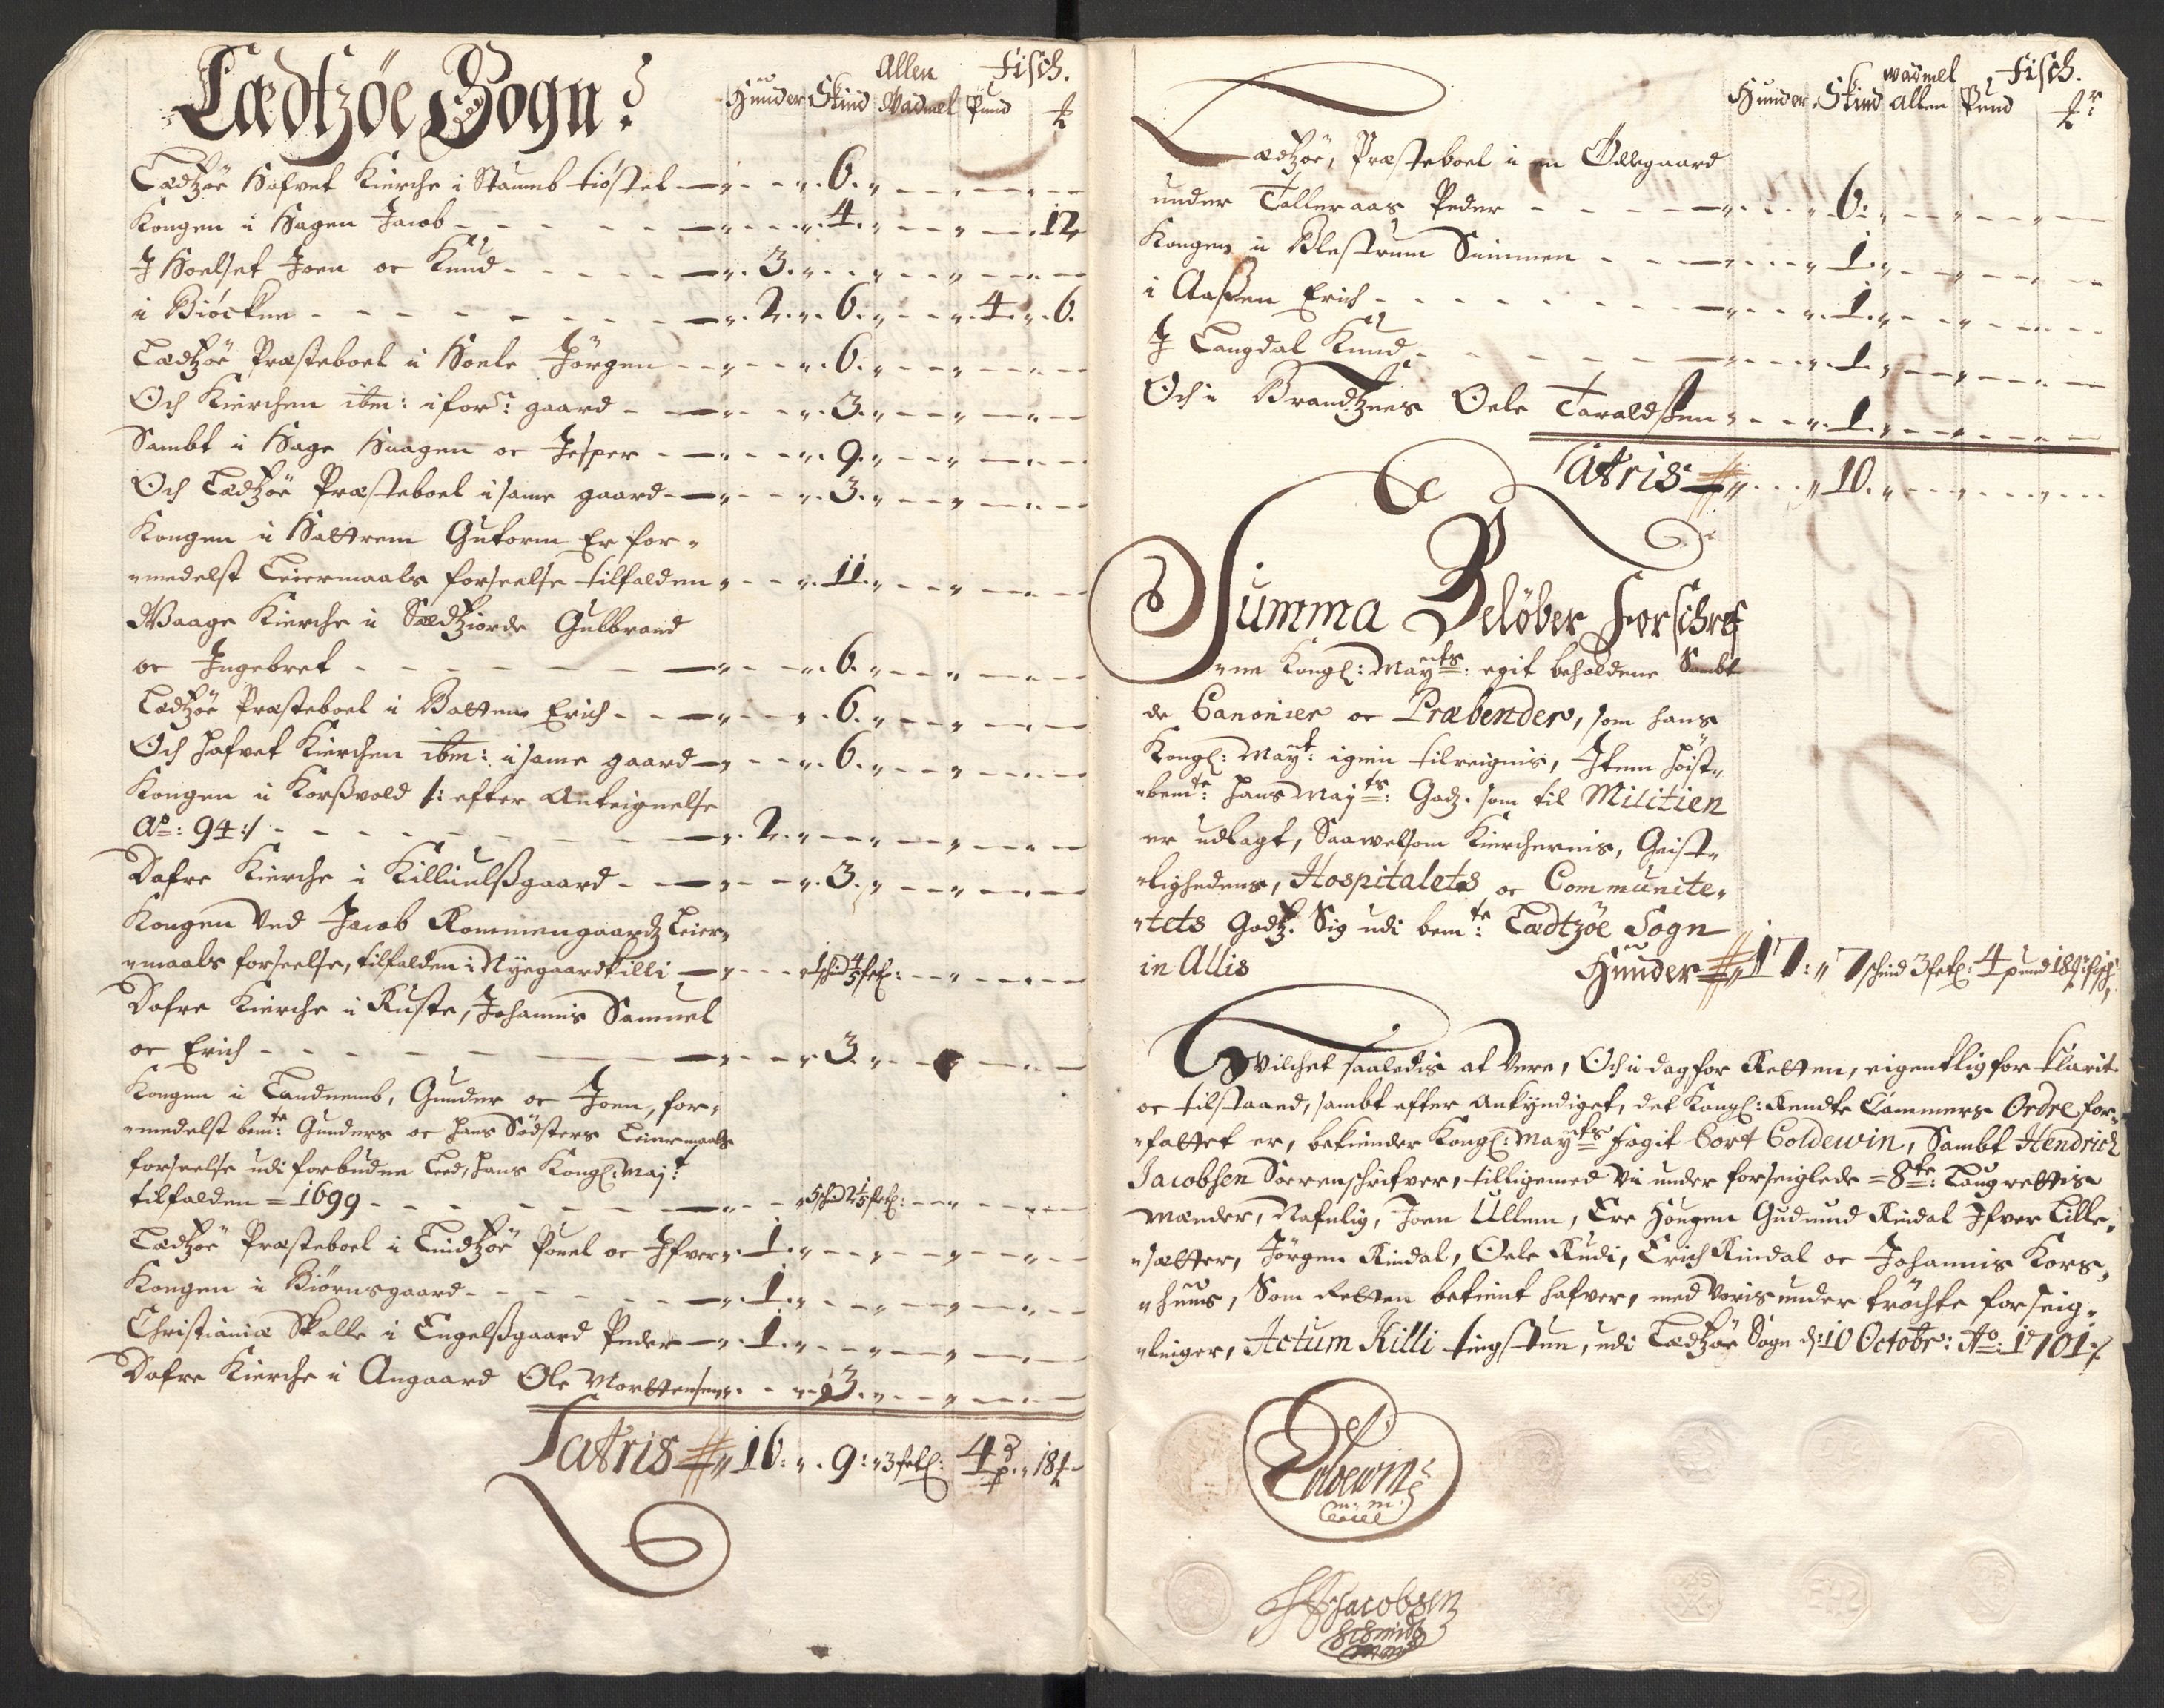 Lædtzöe Sogn:
Allen Fisch.
Hunder Skind Wadmel Pund ℔
Lædtzöe Hafvet Kirche i Staumb tiöstel — 6.
Kongen i Hagen Jacob — 4. — 12
J Hoelset Joen oc Knud — 3.
i Biöcken — 2. 6. 4. 6.
Lædtzöe Præsteboel i Hoele Jörgen — 6.
Och Kirchen ibm: i forne: gaard — 3.
Sambt i Hage Haagen oc Jesper — 9.
Och Lædtzöe Præsteboel i same gaard — 3.
Kongen i Hattrem Gutorm Er for„
„medelst Leiermaals forseelse tilfalden — 11.
Waage Kirche i Sædtziorde Gulbrand
oc Ingebret — 6.
Lædtzöe Præsteboel i Botten Erich — 6.
Och hafvet Kirchen ibm: i same gaard — 6.
Kongen i Korßvold /: efter Anteignelse
Ao: 94 :/ — 2.
Dofre Kirche i Killiulßgaard — 3.
Kongen Ved Jacob Rommengaardz Leier„
„maals forseelse, tilfalden i Nyegaard Killi — 1 schid 4/5 fetl:
Dofre Kirche i Ruste, Johannis Samuel
oc Erich — 3.
Kongen i Landnemb, Gunder oc Joen, for„
„medelst bemte: Gunders oc hans Södsters Leiermaals
forseelse udi forbudne Leed, hans Kongl: Mayt:
tilfalden = 1699 — 5 schid 2 1/5 fetl:
Lædtzöe Præsteboel i Lindtzöe Povel oc Ifver — 1.
Kongen i Biörnsgaard — 1.
Christianiæ Skolle i Engelßgaard Peder — 1.
Dofre Kirche i Angaard Ole Mortensen — 3.
Latris 16: 9: 3 fetl: 4 p. 18 ℔
wadmel Fisch.
Hunder Skind Allen Pund ℔r
Lædtzöe, Præsteboel i en Ödegaard
under Tolleraas Peder — 6.
Kongen i Blestrum Simmen — 1.
i Aaßen Erich — 1.
J Langdal Knud — 1.
Och i Brandtznes Oele Taraldsen — 1.
Latris 10.
Summa Belöber Forschref
„ne Kongl: Mayets: egit beholdene Sambt
de Canonier oc Præbender, som hans
Kongl: Mayt: igien tilreignis, Item höist„
„bemte: hans Mayts: Godz. som til Militien
er udlagt, Saawelsom Kirchernis, Geist„
„lighedens, Hospitalets oc Communite„
„tets Godtz. Sig udi bemte: Lædtzöe Sogn
in Allis Hunder 17: 7 schind 3 fetl: 4 pund 18 ℔ fisch,
Hvilchet saaledis at Vere, Och i dag for Retten, eigentlig forklarit
oc tilstaaed, sambt efter Ankyndiget, det Kongl: Rendte Cammers Ordre for„
„fattet er, bekiender Kongl: Mayts fogit Cort Coldewin, Sambt Hendrich
Jacobsen Sorenschrifver, tilligemed Vi under forseiglede = 8te: Laugrettis
Mænder, Nafnlig, Joen Ullem, Ere Hougen Gudmund Rindal Ifver Lille„
„sætter, Jörgen Rindal, Oele Rudi, Erich Rindal oc Johannis Kors„
„huus, Som Retten betient hafver, med Voris under tröchte forseig„
„linger, Actum Killi tingstuu, udi Lædtzöe Sogn d: 10 Octobr: Ao: 1701
Coldewin
HJacobsen
Schmidt